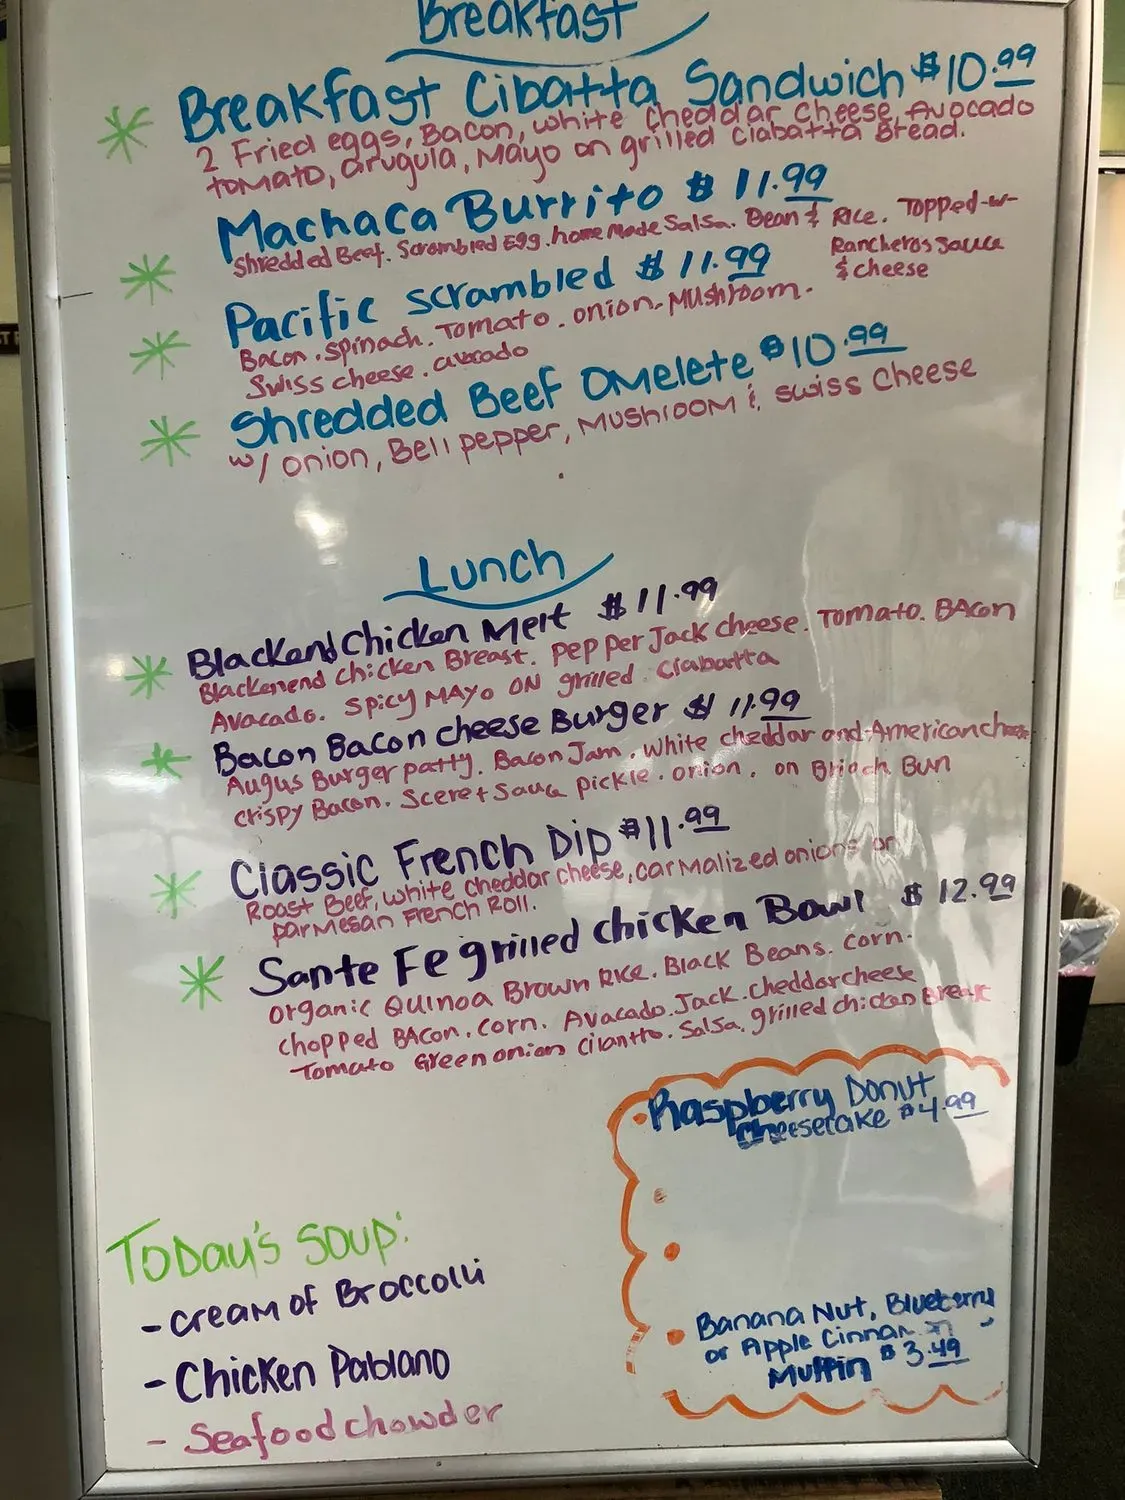 Breakfast
Breakfast Cibatta Sandwich $10.99
2 Fried eggs, Bacon, white Cheddar Cheese, Avocado
tomato, arugula, Mayo on grilled Ciabatta Bread.
Machaca Burrito $11.99
Shredded Beef. Scrambled Egg. home Made Salsa. Bean & Rice. Topped-w-
Rancheros Sauce
& cheese
Pacific scrambled $11.99
Bacon. Spinach. Tomato. onion. Mushroom.
Swiss cheese. avocado
Shredded Beef Omelete $10.99
w/ onion, Bell pepper, Mushroom & swiss cheese
Lunch
Blackend Chicken Melt $11.99
Blackenend chicken Breast. PepperJack cheese. Tomato. Bacon
Avacado. Spicy Mayo on grilled. Ciabatta
Bacon Bacon cheese Burger $11.99
Augus Burger patty. Bacon Jam. white cheddar and American
crispy Bacon. Sceret Sauce pickle. onion. on Brioch Bun
Classic French Dip $11.99
Roast Beef, white cheddar cheese, carmalized onions on
parmesan French Roll.
Sante Fe grilled chicken Bowl $12.99
organic Quinoa Brown Rice. Black Beans. corn.
chopped Bacon. corn. Avacado. Jack. cheddar cheese
Tomato Green onion Cilantto. Salsa. grilled chicken
Raspberry Donut
Cheesecake $4.99
Banana Nut, Blueberry
or Apple Cinnamon
Muffin $3.49
Today's Soup:
- cream of Broccolli
- Chicken Pablano
- Seafood chowder